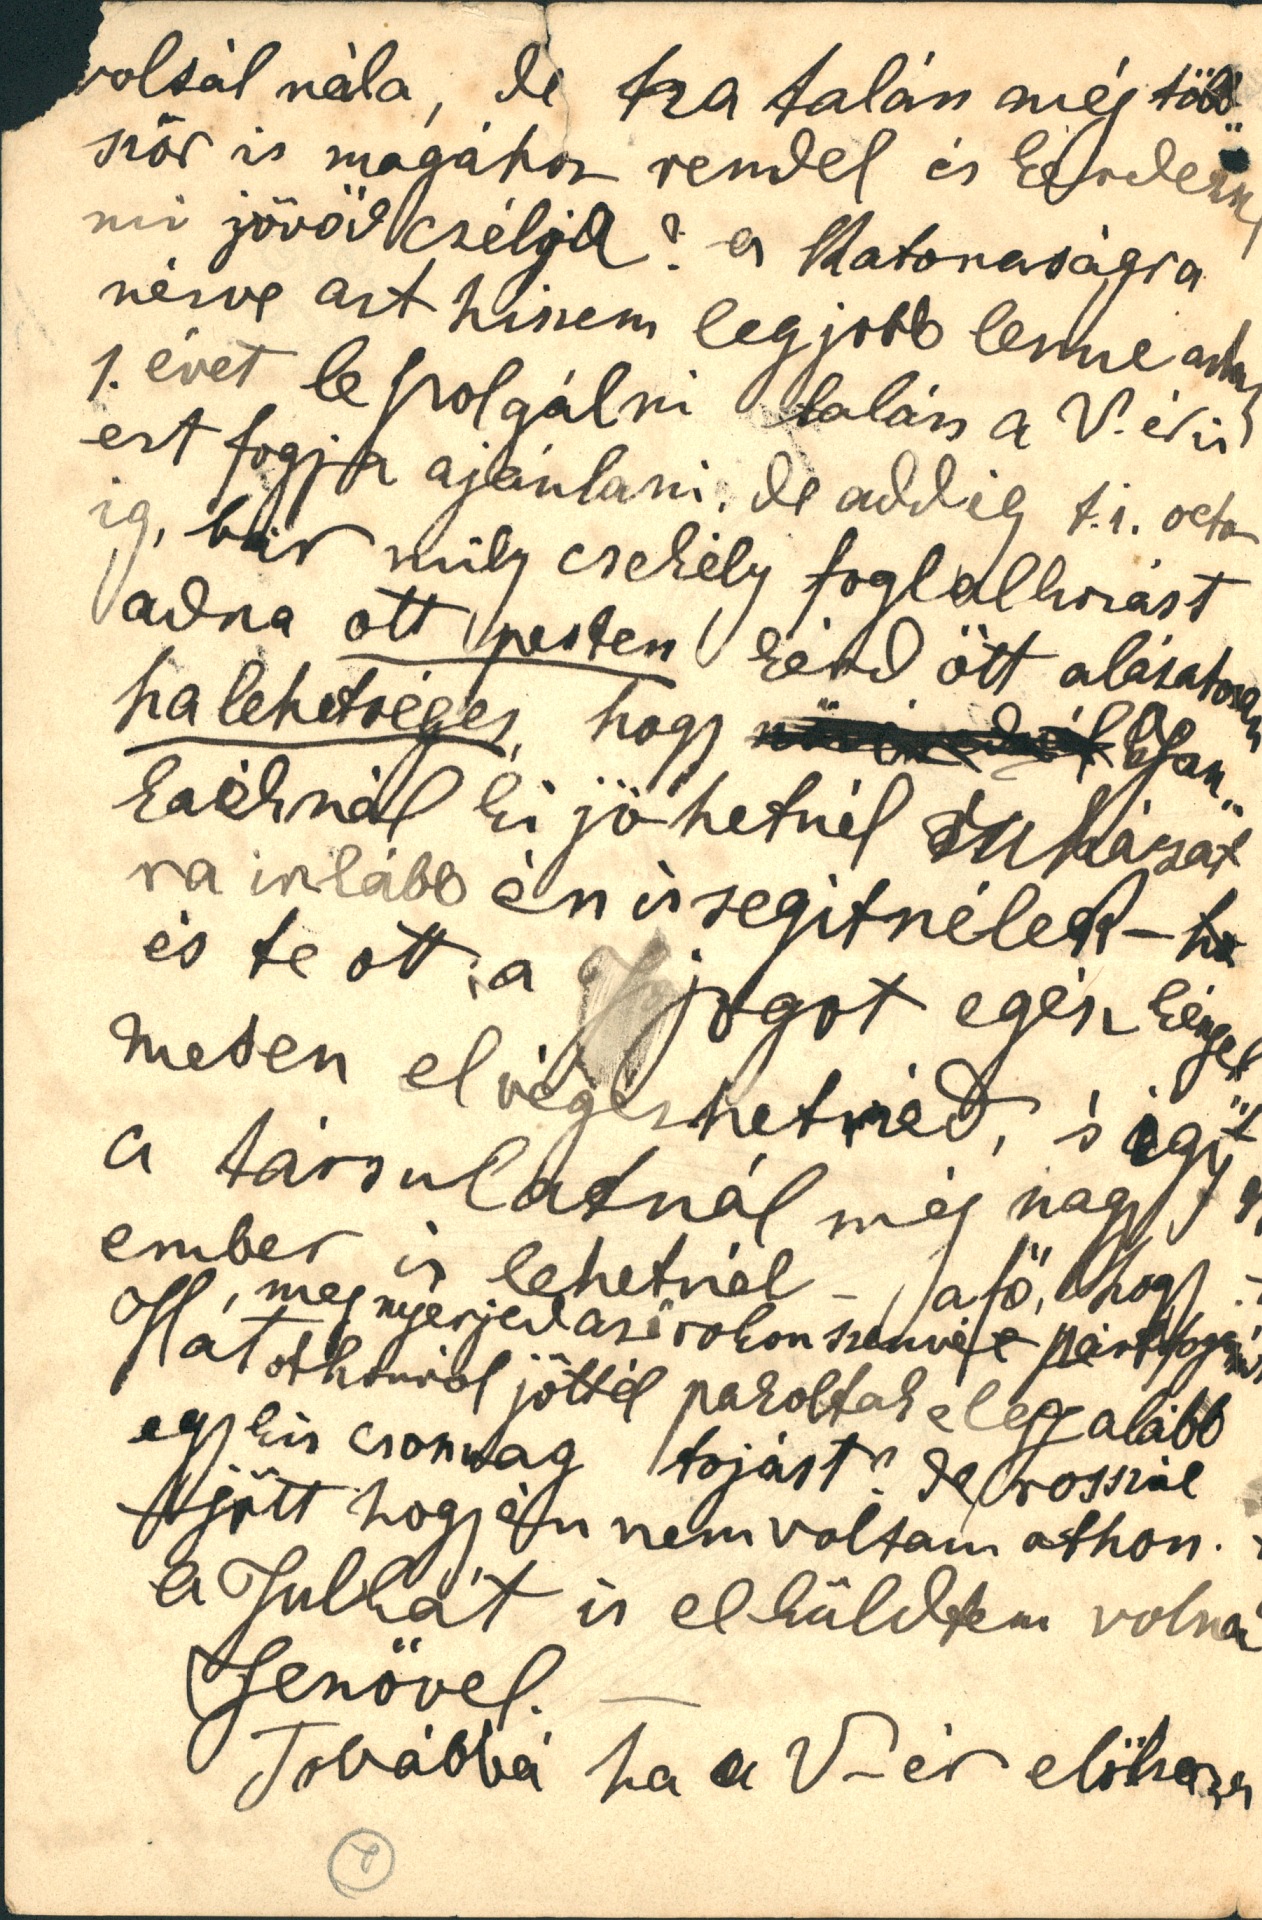 voltál nála, de ha talán még több
ször is magához rendel és kérdezni
mi jövőd czélja? a Katonaságra
nézve azt hiszem legjobb lenne
1. évet le szolgálni talán a V. ér is
ezt fogja ajánlani. de addig t.i. octo
ig, bár mily csekély foglalkozást
adna ott pesten kérd őtt alásatosan
ha lehetséges, hogy
kijöhetnél
ra inkább én is segitnélek –
és te ott a jogot egész kényel
mesen el végezhetned, s igy
a társulatnál még nagy
ember is lehetnél – a fő, hogy
megnyerjed az ő rokonszenvét
Hát othonrol jöttél pakoltak e leg alább
egy kis csomag tojást? de rosszúl
jött hogy én nem voltam othon.
a Julkát is el küldtem volna
Jenővel. —
Továbbá ha a V–ér